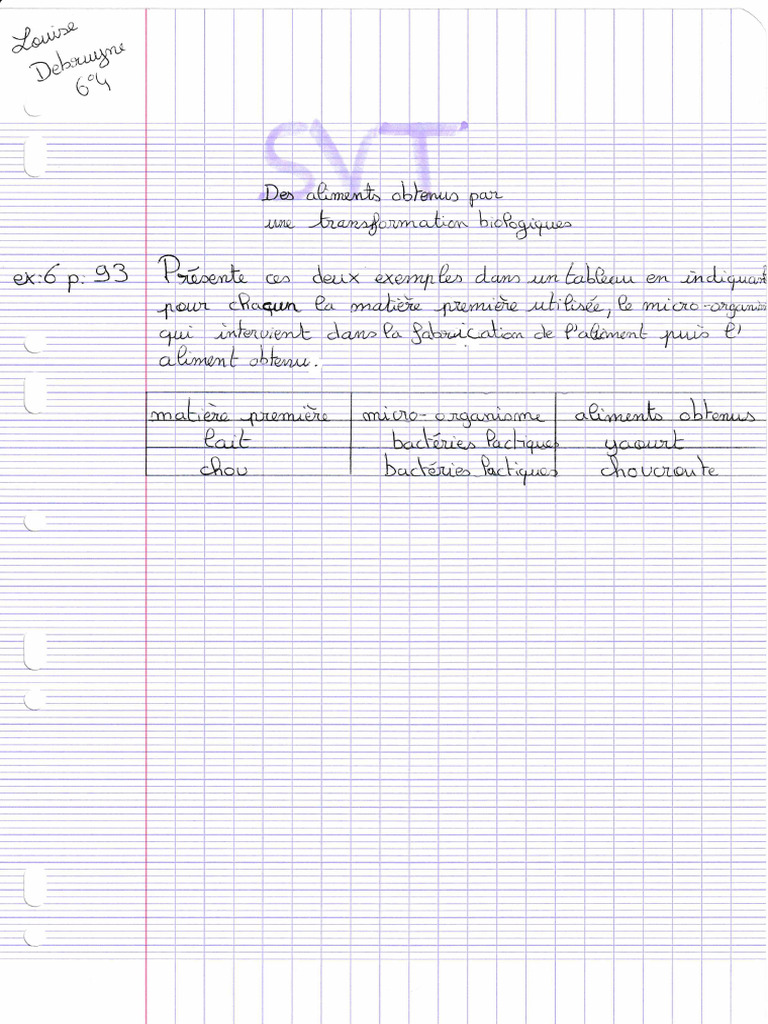 Louise
Debruyne
6°4
SVT
Des aliments obtenus par
une transformation biologiques
ex:6 p:93 Présente ces deux exemples dans un tableau en indiquant
pour chaqun la matière première utilisée, le micro-organis
qui intervient dans la fabrication de l'aliment puis l'
aliment obtenu.
matière première micro-organisme aliments obtenus
lait bactéries lactiques yaourt
chou bactéries lactiques choucroute